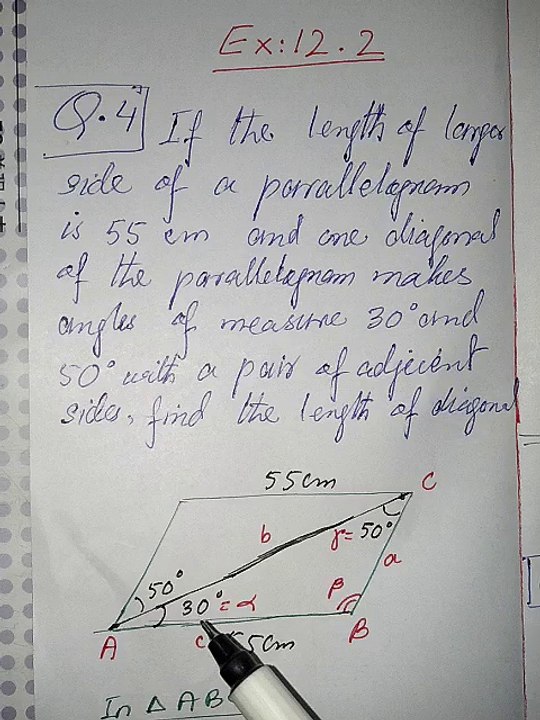 Ex:12.2
Q.4 If the length of larger
side of a parrallelogram
is 55 cm and one diagonal
of the parallelogram makes
angles of measure 30° and
50° with a pair of adjecent
sides, find the length of diagonal
55cm
C
b
γ=50°
a
50°
30°=α
β
A
c
55cm
B
In △ AB